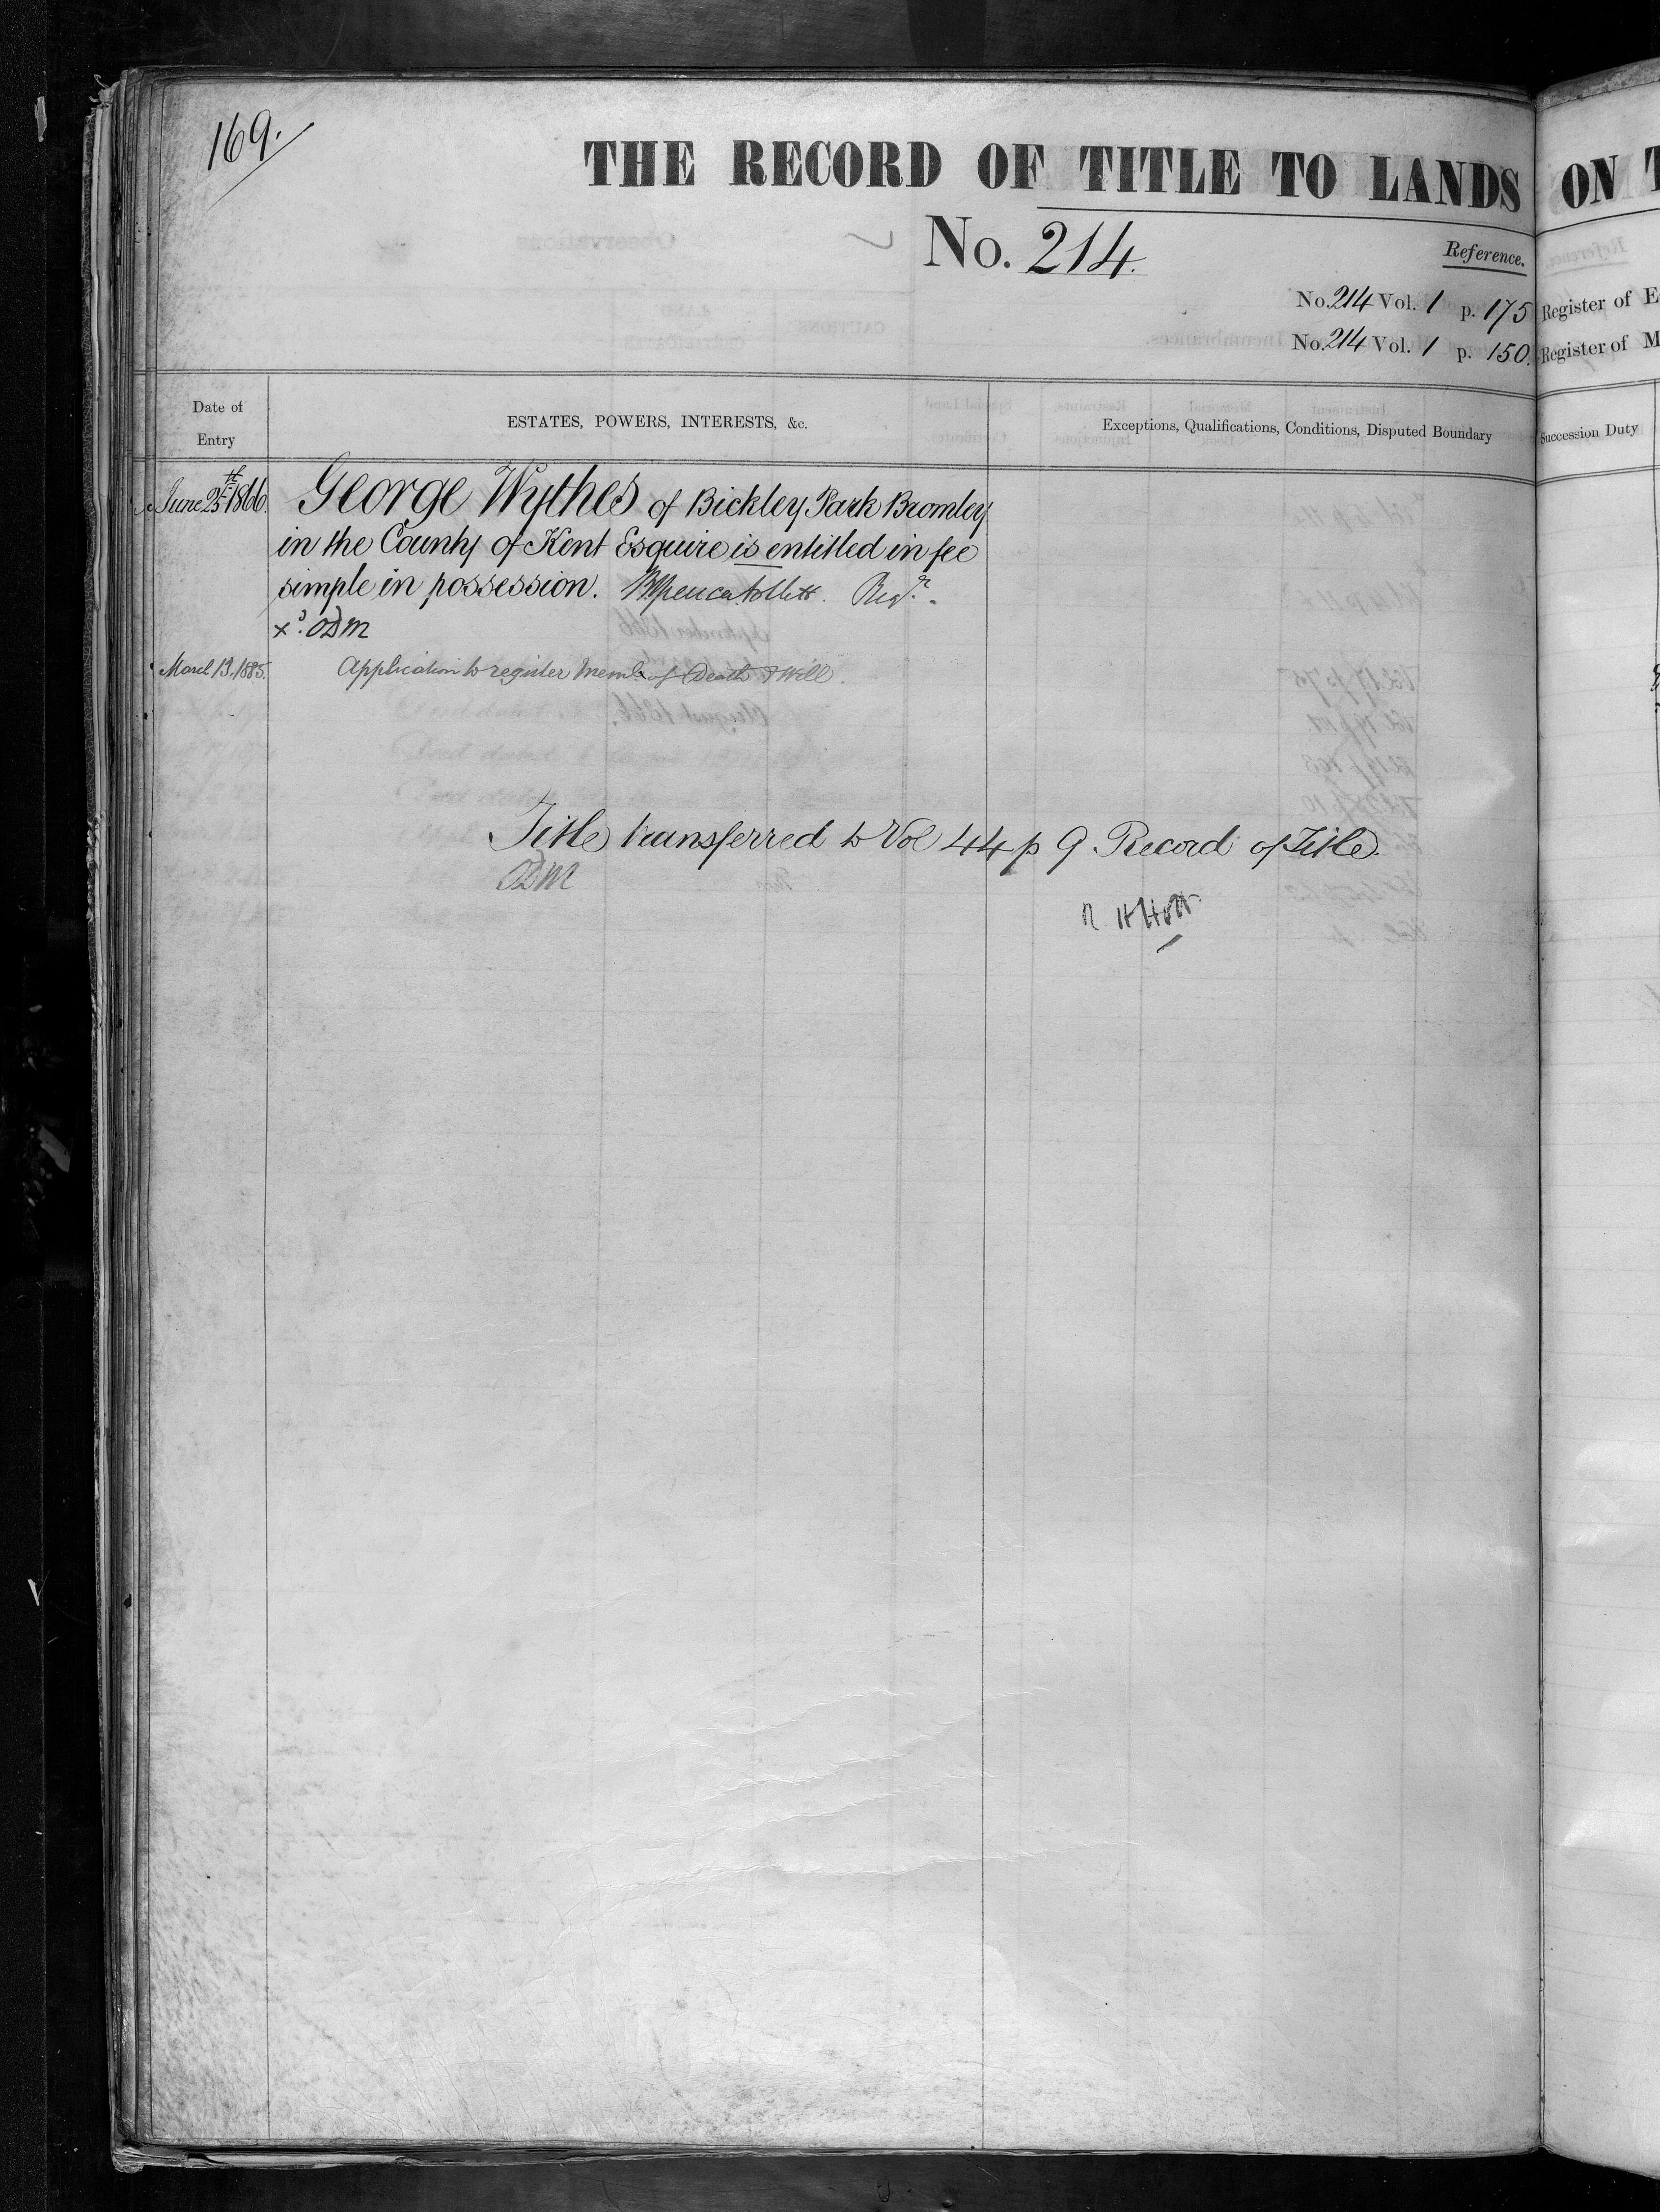 169.
THE RECORD OF TITLE TO LANDS ON
No. 214.
Reference.
No. 214 Vol. 1 p. 175 Register of
No. 214 Vol. 1 p. 150. Register of
Date of Entry
ESTATES, POWERS, INTERESTS, &c.
Exceptions, Qualifications, Conditions, Disputed Boundary
Succession Duty
June 25th 1866. George Wythes of Bickley Park Bromley
in the County of Kent Esquire is entitled in fee
simple in possession. Regr.
March 13. 1885. Application to register Meml of Death & Will.
Title transferred to Vol 44 p 9 Record of Title.